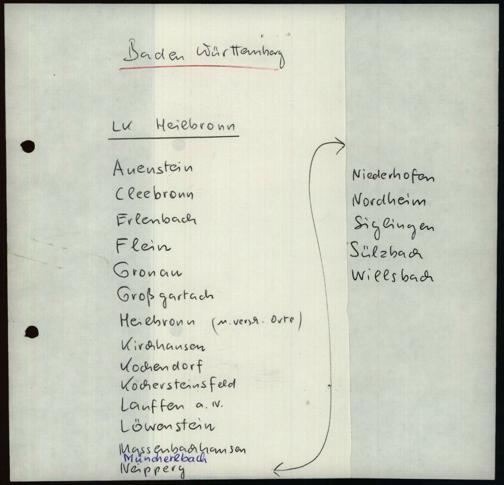 Baden Württemberg
LK Heilbronn
Auenstein
Cleebronn
Erlenbach
Flein
Gronau
Großgartach
Heilbronn (u. versch. Orte)
Kirchhausen
Kochendorf
Kochersteinsfeld
Lauffen a. N.
Löwenstein
Massenbachhausen
Münchelbach
Neipperg
Niederhofen
Nordheim
Siglingen
Sülzbach
Willsbach